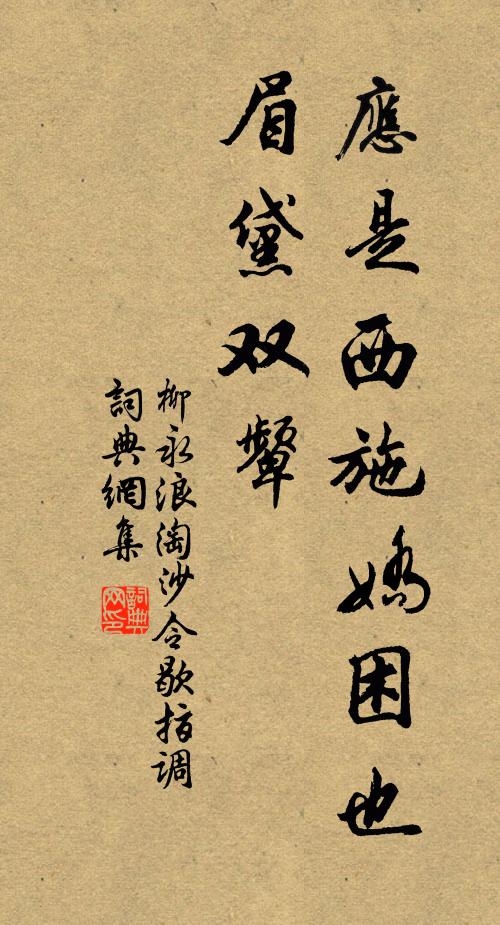 應是西施嬌困也
眉黛双颦
柳永浪淘沙令歇指调
詞典網集
詞典
网印